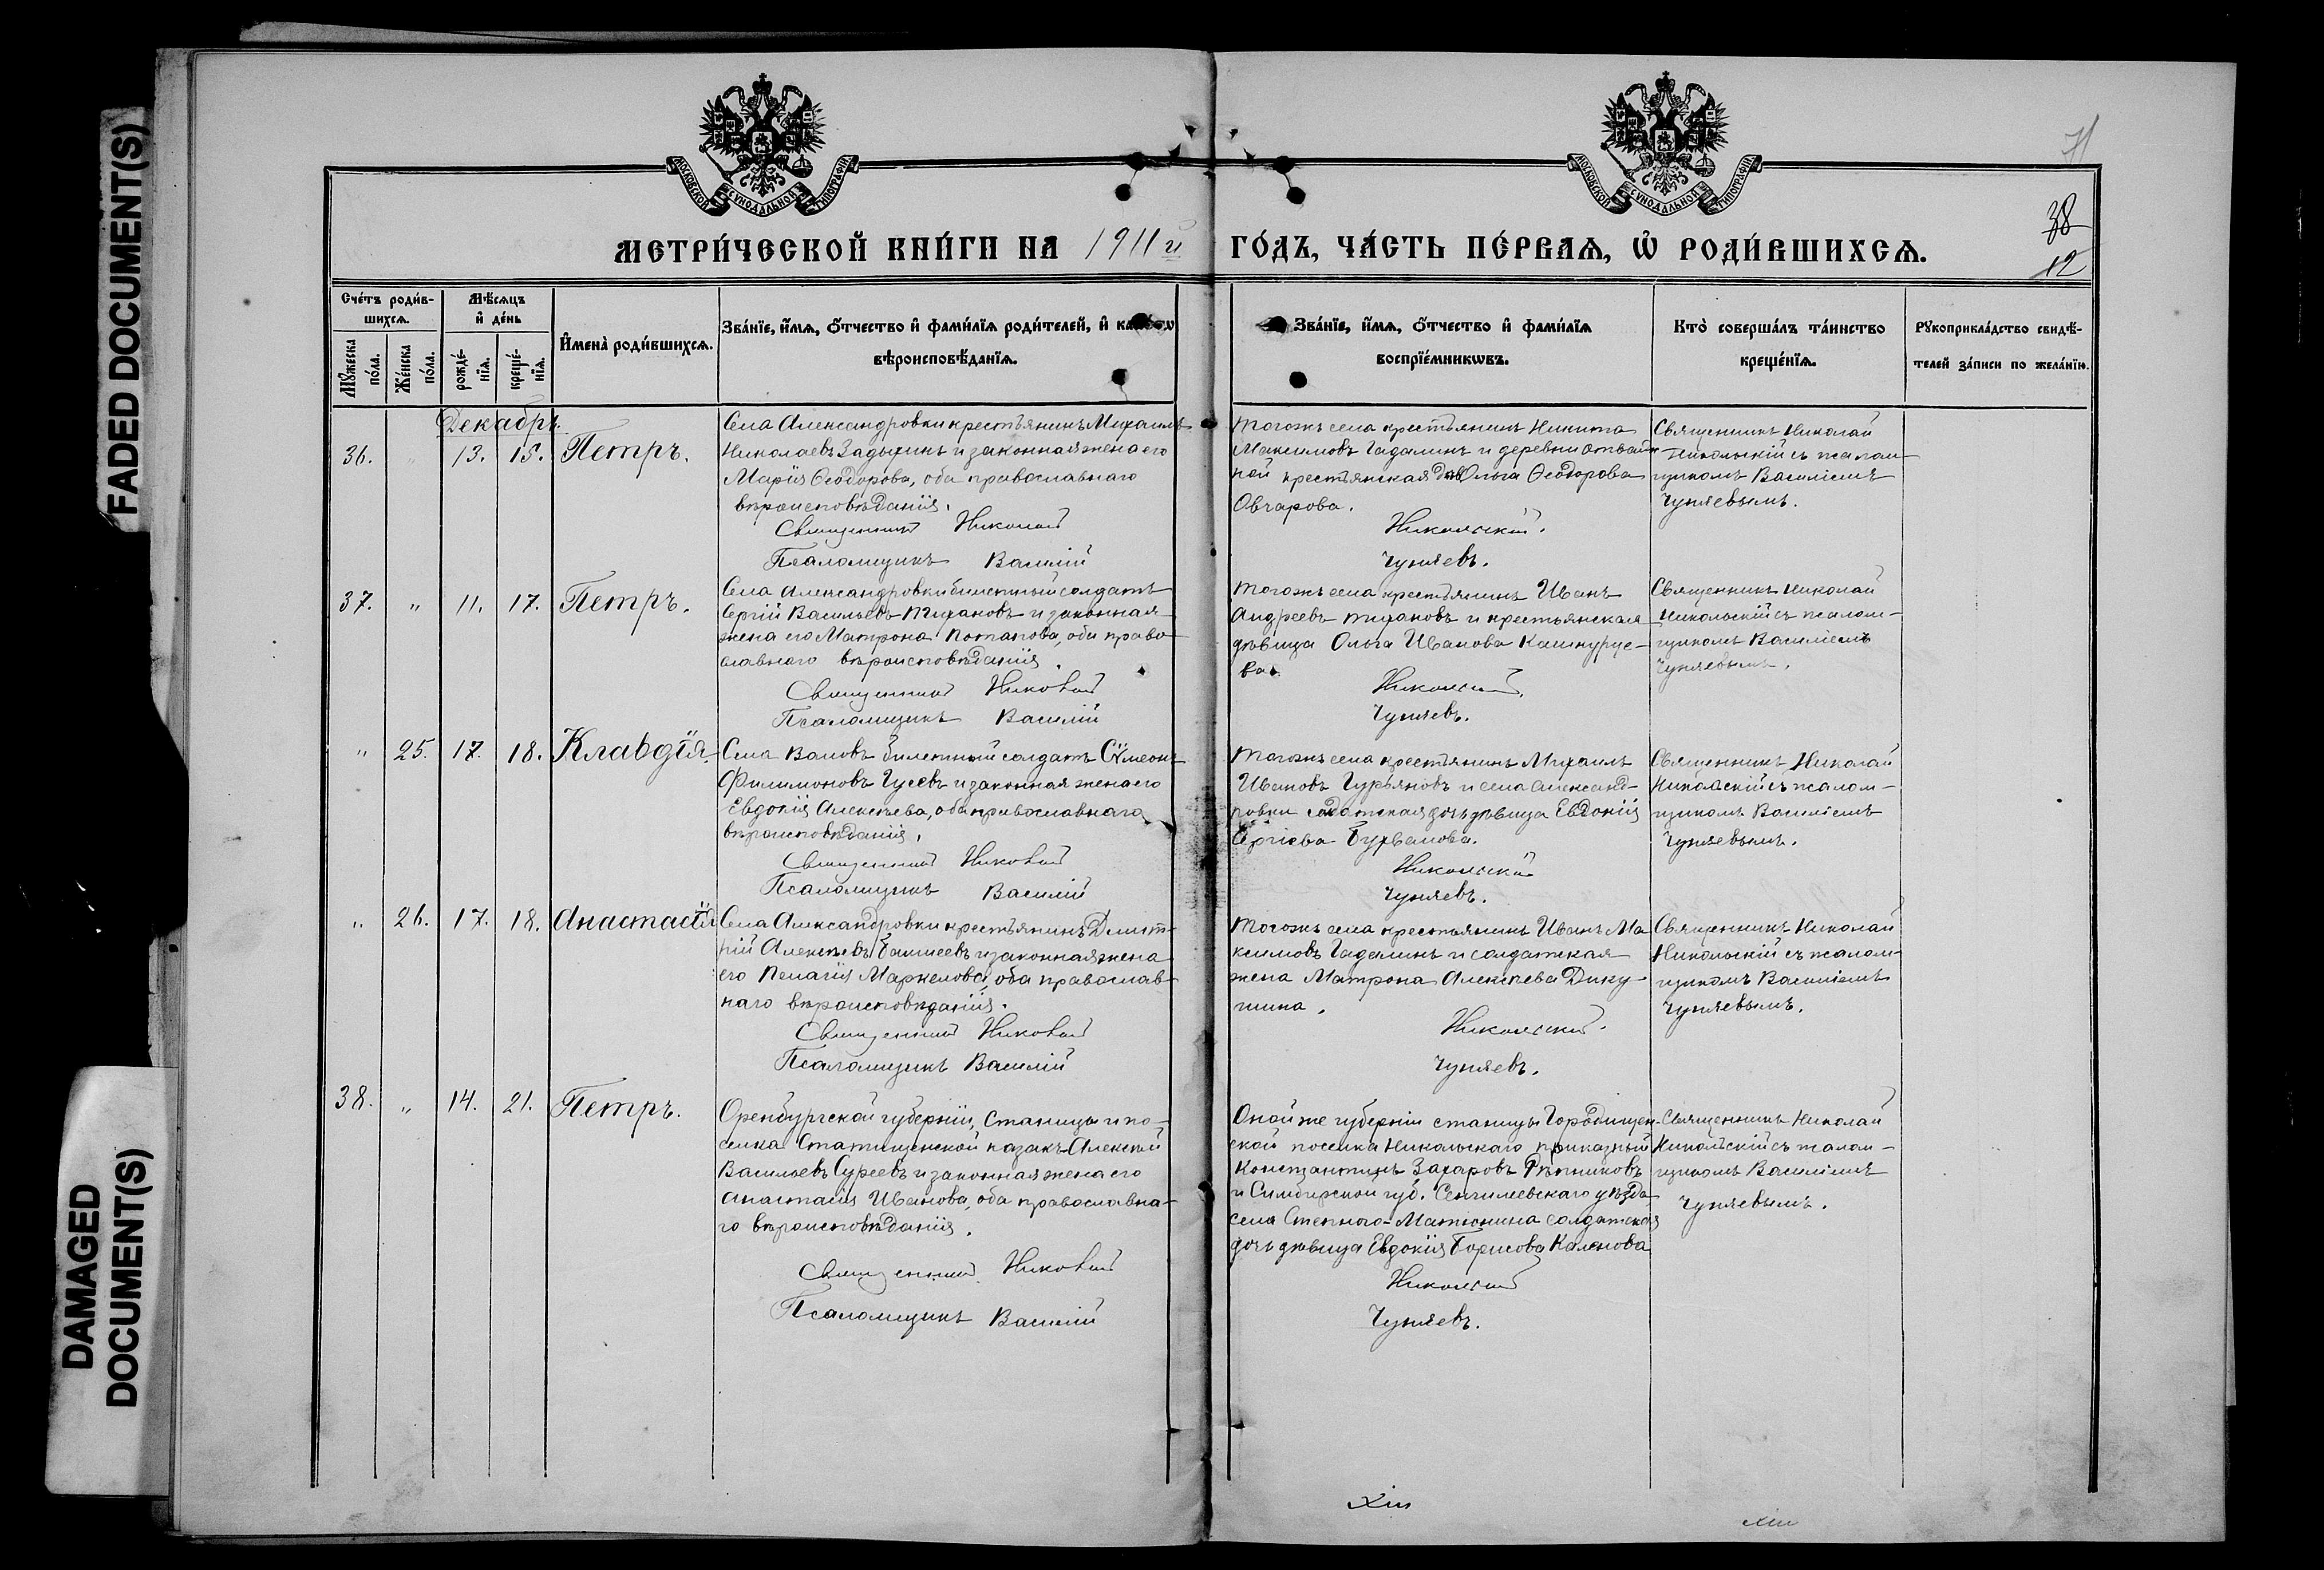 FADED DOCUMENT(S)
DAMAGED
DOCUMENT(S)
МОСКОВСКОЙ СѴНОДАЛЬНОЙ ТИПОГРАФІИ
МОСКОВСКОЙ СѴНОДАЛЬНОЙ ТИПОГРАФІИ
71
38
12
МЕТРИ́ЧЕСКОЙ КНИ́ГИ НА 1911 й ГО́ДЪ, ЧА́СТЬ ПЕ́РВАѦ, Ѡ҆ РОДИ́ВШИХСѦ.
Сче́тъ роди́в-
шихсѧ.
Мꙋ́жеска
по́ла.
Же́нска
по́ла.
Мѣ́сѧцъ
и҆ де́нь
рожде́-
нїѧ.
креще́-
нїѧ.
И҆мена̀ роди́вшихсѧ.
Зва́нїе, и҆́мѧ, ѻ҆́тчество и҆ фами́лїѧ роди́телей, и҆
вѣроисповѣ́данїѧ.
Зва́нїе, и҆́мѧ, ѻ҆́тчество и҆ фами́лїѧ
воспрїе́мникѡвъ.
Кто̀ соверша́лъ та́инство
креще́нїѧ.
Рꙋкоприкла́дство свидѣ́-
телей за́писи по жела́нїю.
Декабрь.
36. " 13. 15. Петръ.
Села Александровки крестьянинъ Михаилъ
Николаевъ Задыхинъ и законная жена его
Марія Ѳеодорова, оба православнаго
вѣроисповѣданія.
Священникъ Николай
Псаломщикъ Василій
Тогожъ села крестьянинъ Никита
Максимовъ Гадалинъ и деревни
крестьянская Ольга Ѳеодорова
Овчарова.
Никольскій.
Чуняевъ.
Священникъ Николай
Никольскій съ псалом-
щикомъ Василіемъ
Чуняевымъ.
37. " 11. 17. Петръ.
Села Александровки билетный солдатъ
Сергій Васильевъ Тихановъ и законная
жена его Матрона Потапова, оба право-
славнаго вѣроисповѣданія.
Священникъ Николай
Псаломщикъ Василій
Тогожъ села крестьянинъ Иванъ
Андреевъ Тихановъ и крестьянская
дѣвица Ольга Иванова
ва.
Никольскій.
Чуняевъ.
Священникъ Николай
Никольскій съ псалом-
щикомъ Василіемъ
Чуняевымъ.
" 25. 17. 18. Клавдія.
Села Валовъ билетный солдатъ Сѵмеонъ
Филимоновъ Гусевъ и законная жена его
Евдокія Алексѣева, оба православнаго
вѣроисповѣданія.
Священникъ Николай
Псаломщикъ Василій
Тогожъ села крестьянинъ Михаилъ
Ивановъ Гурьяновъ и села Александ-
ровки солдатская дочь дѣвица Евдокія
Сергіева
Никольскій
Чуняевъ.
Священникъ Николай
Никольскій съ псалом-
щикомъ Василіемъ
Чуняевымъ.
" 26. 17. 18. Анастасія
Села Александровки крестьянинъ Димит-
рій Алексѣевъ и законная жена
его Пелагія Маркелова, оба православ-
наго вѣроисповѣданія.
Священникъ Николай
Псаломщикъ Василій
Тогожъ села крестьянинъ Иванъ Ма
ксимовъ Гадалинъ и солдатская
жена Матрона Алексѣева Дику-
шина.
Никольскій.
Чуняевъ.
Священникъ Николай
Никольскій съ псалом-
щикомъ Василіемъ
Чуняевымъ.
38. " 14. 21. Петръ.
Оренбургской губерніи, станицы и по-
селка казакъ Алексѣй
Васильевъ Суреевъ и законная жена его
Анастасія Иванова, оба православна-
го вѣроисповѣданія.
Священникъ Николай
Псаломщикъ Василій
Оной же губерніи станицы Городищен-
ской поселка Никольскаго приказный
Константинъ Захаровъ Рѣпниковъ
и Симбирской губ. Сенгилеевскаго уѣзда
села Степного-Матюнина солдатская
дочь дѣвица Евдокія Борисова Каленова
Никольскій
Чуняевъ.
Священникъ Николай
Никольскій съ псалом-
щикомъ Василіемъ
Чуняевымъ.